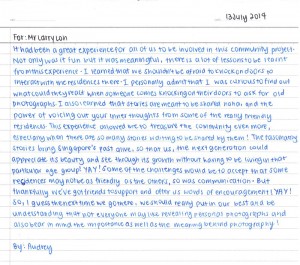 13 July 2019
For: Mr Larry Loh
It had been a great experience for all of us to be involved in this community project.
Not only was it fun but it was meaningful, there is a lot of lessons to be learnt
from this experience. I learned that we shouldn't be afraid to knock on doors to
interact with the residents there. I personally admit that I was curious to find out
what could they react when someone comes knocking on their doors to ask for old
photographs. I also learned that stories are meant to be shared and the
power of voicing out your inner thoughts from some of the really friendly
residents. This experience allowed me to treasure the community even more,
especially when there are so many stories waiting to be shared by them! The
stories bring Singapore's past alive, so that us, the next generation could
appreciate its beauty and see through its growth without having to be living in that
particular age group! YAY! Some of the challenges would be to accept that some
residences may not as friendly as the others, so was communication. But
thankfully we've got friends to support and offer us words of encouragement (YAY!
So, I guess the next time we go there, we should really put in our best and be
understanding that not everyone may like revealing personal photographs and
also bear in mind the importance as well as the meaning behind photography!
By: Audrey